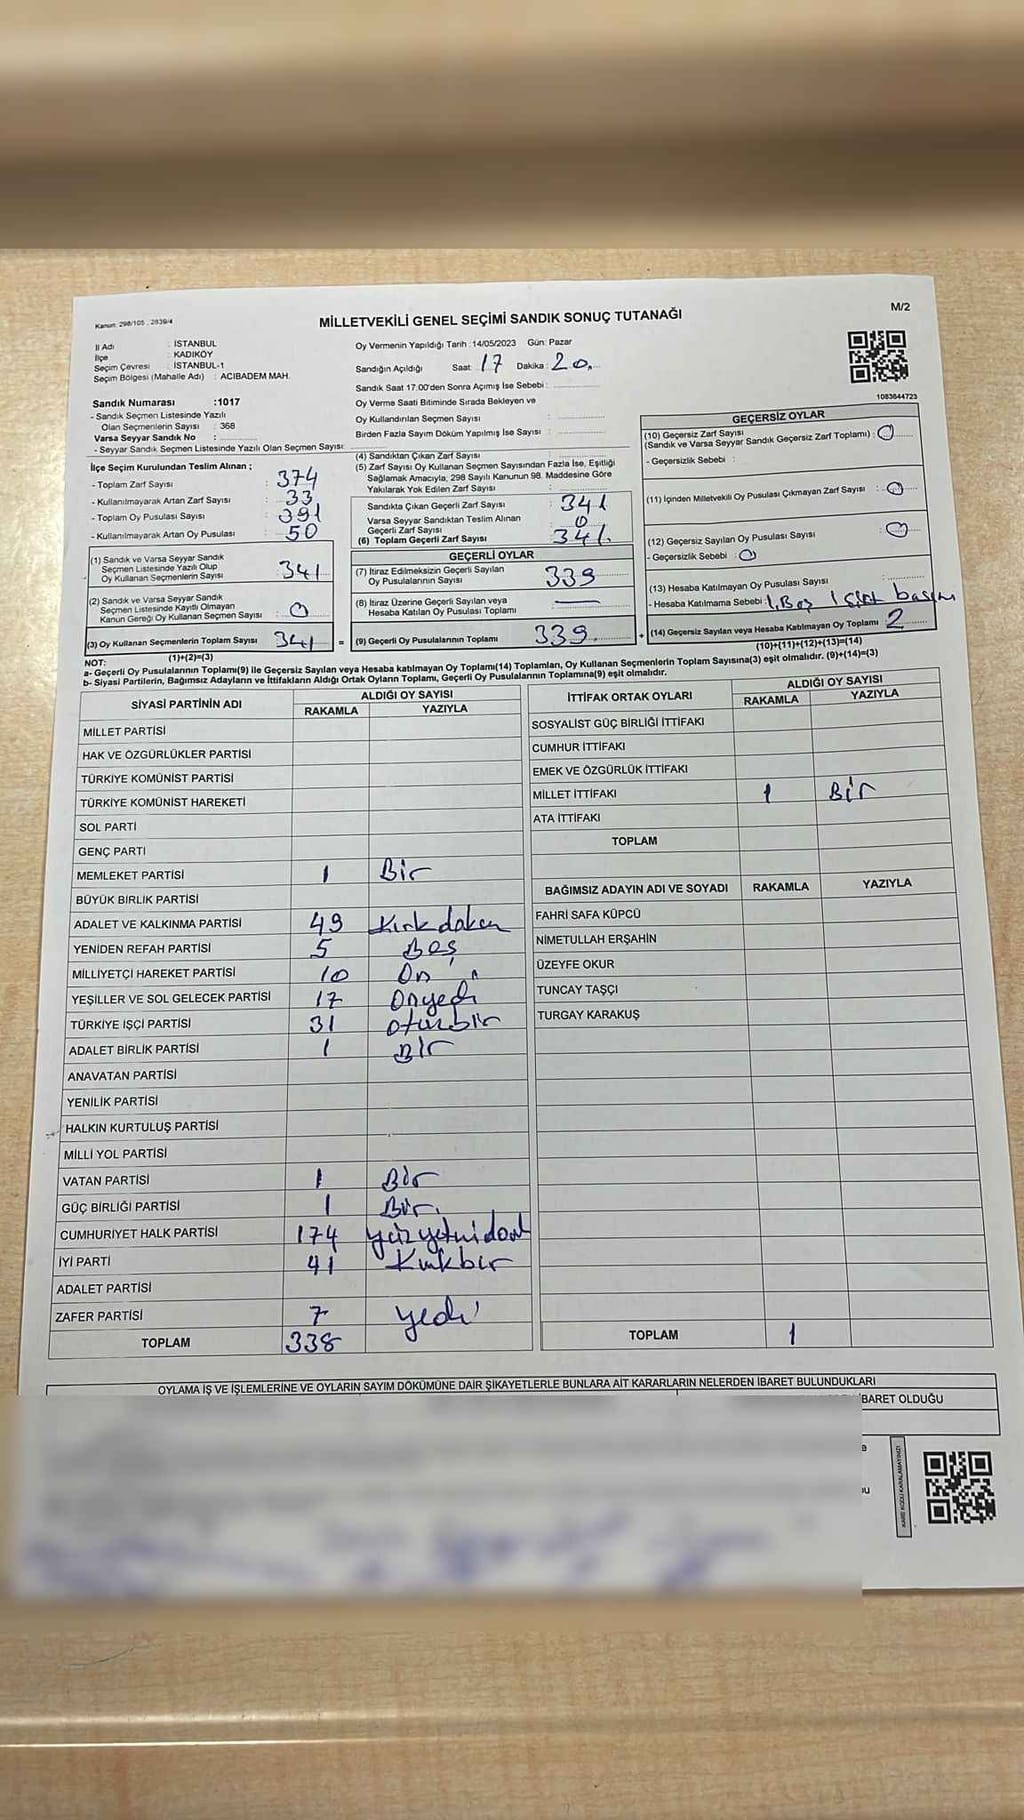 Kanun: 298/105 , 2839/4
MİLLETVEKİLİ GENEL SEÇİMİ SANDIK SONUÇ TUTANAĞI
M/2
İl Adı : İSTANBUL
İlçe : KADIKÖY
Seçim Çevresi : İSTANBUL-1
Seçim Bölgesi (Mahalle Adı) : ACIBADEM MAH.
Oy Vermenin Yapıldığı Tarih :14/05/2023 Gün: Pazar
Sandığın Açıldığı Saat: 17 Dakika: 20
Sandık Saat 17:00'den Sonra Açımış İse Sebebi :
Oy Verme Saati Bitiminde Sırada Bekleyen ve
Oy Kullandırılan Seçmen Sayısı :
Birden Fazla Sayım Döküm Yapılmış İse Sayısı :
1083644723
Sandık Numarası :1017
- Sandık Seçmen Listesinde Yazılı
Olan Seçmenlerin Sayısı : 368
Varsa Seyyar Sandık No :
- Seyyar Sandık Seçmen Listesinde Yazılı Olan Seçmen Sayısı:
İlçe Seçim Kurulundan Teslim Alınan ;
- Toplam Zarf Sayısı : 374
- Kullanılmayarak Artan Zarf Sayısı : 33
- Toplam Oy Pusulası Sayısı : 391
- Kullanılmayarak Artan Oy Pusulası : 50
(1) Sandık ve Varsa Seyyar Sandık
Seçmen Listesinde Yazılı Olup
Oy Kullanan Seçmenlerin Sayısı : 341
(2) Sandık ve Varsa Seyyar Sandık
Seçmen Listesinde Kayıtlı Olmayan
Kanun Gereği Oy Kullanan Seçmen Sayısı : 0
(3) Oy Kullanan Seçmenlerin Toplam Sayısı 341 =
(1)+(2)=(3)
(4) Sandıktan Çıkan Zarf Sayısı :
(5) Zarf Sayısı Oy Kullanan Seçmen Sayısından Fazla İse, Eşitliği
Sağlamak Amacıyla, 298 Sayılı Kanunun 98. Maddesine Göre
Yakılarak Yok Edilen Zarf Sayısı :
Sandıkta Çıkan Geçerli Zarf Sayısı : 341
Varsa Seyyar Sandıktan Teslim Alınan
Geçerli Zarf Sayısı : 0
(6) Toplam Geçerli Zarf Sayısı : 341
GEÇERLİ OYLAR
(7) İtiraz Edilmeksizin Geçerli Sayılan
Oy Pusulalarının Sayısı : 339
(8) İtiraz Üzerine Geçerli Sayılan veya
Hesaba Katılan Oy Pusulası Toplamı : —
(9) Geçerli Oy Pusulalarının Toplamı 339 +
GEÇERSİZ OYLAR
(10) Geçersiz Zarf Sayısı
(Sandık ve Varsa Seyyar Sandık Geçersiz Zarf Toplamı) : 0
- Geçersizlik Sebebi :
(11) İçinden Milletvekili Oy Pusulası Çıkmayan Zarf Sayısı : 0
(12) Geçersiz Sayılan Oy Pusulası Sayısı : 0
- Geçersizlik Sebebi : 0
(13) Hesaba Katılmayan Oy Pusulası Sayısı :
- Hesaba Katılmama Sebebi : 1 Boş 1 Çift basım
(14) Geçersiz Sayılan veya Hesaba Katılmayan Oy Toplamı : 2
(10)+(11)+(12)+(13)=(14)
NOT:
a- Geçerli Oy Pusulalarının Toplamı(9) ile Geçersiz Sayılan veya Hesaba katılmayan Oy Toplamı(14) Toplamları, Oy Kullanan Seçmenlerin Toplam Sayısına(3) eşit olmalıdır. (9)+(14)=(3)
b- Siyasi Partilerin, Bağımsız Adayların ve İttifakların Aldığı Ortak Oyların Toplamı, Geçerli Oy Pusulalarının Toplamına(9) eşit olmalıdır.
SİYASİ PARTİNİN ADI ALDIĞI OY SAYISI
RAKAMLA YAZIYLA
MİLLET PARTİSİ
HAK VE ÖZGÜRLÜKLER PARTİSİ
TÜRKİYE KOMÜNİST PARTİSİ
TÜRKİYE KOMÜNİST HAREKETİ
SOL PARTİ
GENÇ PARTİ
MEMLEKET PARTİSİ 1 Bir
BÜYÜK BİRLİK PARTİSİ
ADALET VE KALKINMA PARTİSİ 49 Kırk dokuz
YENİDEN REFAH PARTİSİ 5 Beş
MİLLİYETÇİ HAREKET PARTİSİ 10 On
YEŞİLLER VE SOL GELECEK PARTİSİ 17 Onyedi
TÜRKİYE İŞÇİ PARTİSİ 31 otuzbir
ADALET BİRLİK PARTİSİ 1 Bir
ANAVATAN PARTİSİ
YENİLİK PARTİSİ
HALKIN KURTULUŞ PARTİSİ
MİLLİ YOL PARTİSİ
VATAN PARTİSİ 1 Bir
GÜÇ BİRLİĞİ PARTİSİ 1 Bir.
CUMHURİYET HALK PARTİSİ 174 yüzyetmişdört
İYİ PARTİ 41 Kırkbir
ADALET PARTİSİ
ZAFER PARTİSİ 7 yedi
TOPLAM 338
İTTİFAK ORTAK OYLARI ALDIĞI OY SAYISI
RAKAMLA YAZIYLA
SOSYALİST GÜÇ BİRLİĞİ İTTİFAKI
CUMHUR İTTİFAKI
EMEK VE ÖZGÜRLÜK İTTİFAKI
MİLLET İTTİFAKI 1 Bir
ATA İTTİFAKI
TOPLAM
BAĞIMSIZ ADAYIN ADI VE SOYADI RAKAMLA YAZIYLA
FAHRİ SAFA KÜPCÜ
NİMETULLAH ERŞAHİN
ÜZEYFE OKUR
TUNCAY TAŞÇI
TURGAY KARAKUŞ
TOPLAM 1
OYLAMA İŞ VE İŞLEMLERİNE VE OYLARIN SAYIM DÖKÜMÜNE DAİR ŞİKAYETLERLE BUNLARA AİT KARARLARIN NELERDEN İBARET BULUNDUKLARI
BARET OLDUĞU
KARE KODU KARALAMAYINIZ!